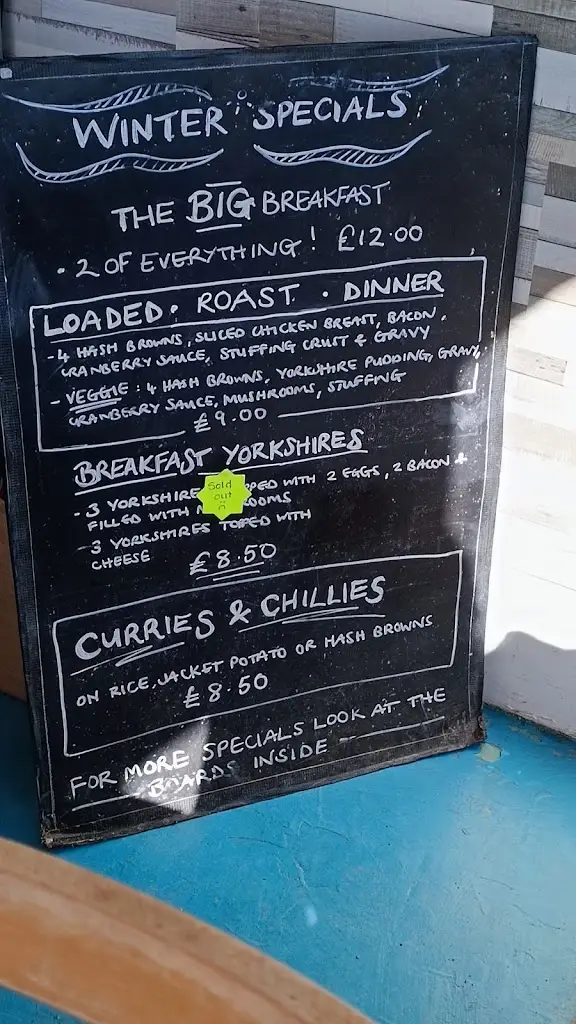 WINTER SPECIALS
THE BIG BREAKFAST
· 2 OF EVERYTHING! £12.00
LOADED · ROAST · DINNER
- 4 HASH BROWNS, SLICED CHICKEN BREAST, BACON,
CRANBERRY SAUCE, STUFFING CRUST & GRAVY
- VEGGIE: 4 HASH BROWNS, YORKSHIRE PUDDING, GRAVY,
CRANBERRY SAUCE, MUSHROOMS, STUFFING
£9.00
BREAKFAST YORKSHIRES
- 3 YORKSHIRE PED WITH 2 EGGS, 2 BACON +
FILLED WITH M ROOMS
Sold
out
- 3 YORKSHIRES TOPED WITH
CHEESE
£8.50
CURRIES & CHILLIES
ON RICE, JACKET POTATO OR HASH BROWNS
£8.50
FOR MORE SPECIALS LOOK AT THE
BOARDS INSIDE